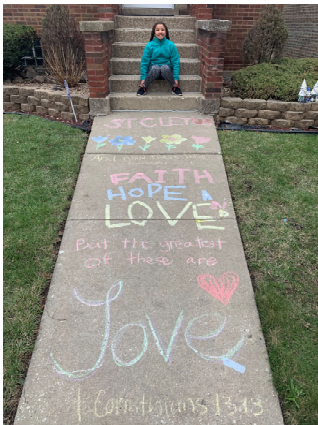 ST CLETUS
And now these three
FAITH
HOPE &
LOVE
But the greatest
of these are
Love
1 Corinthians 13:13